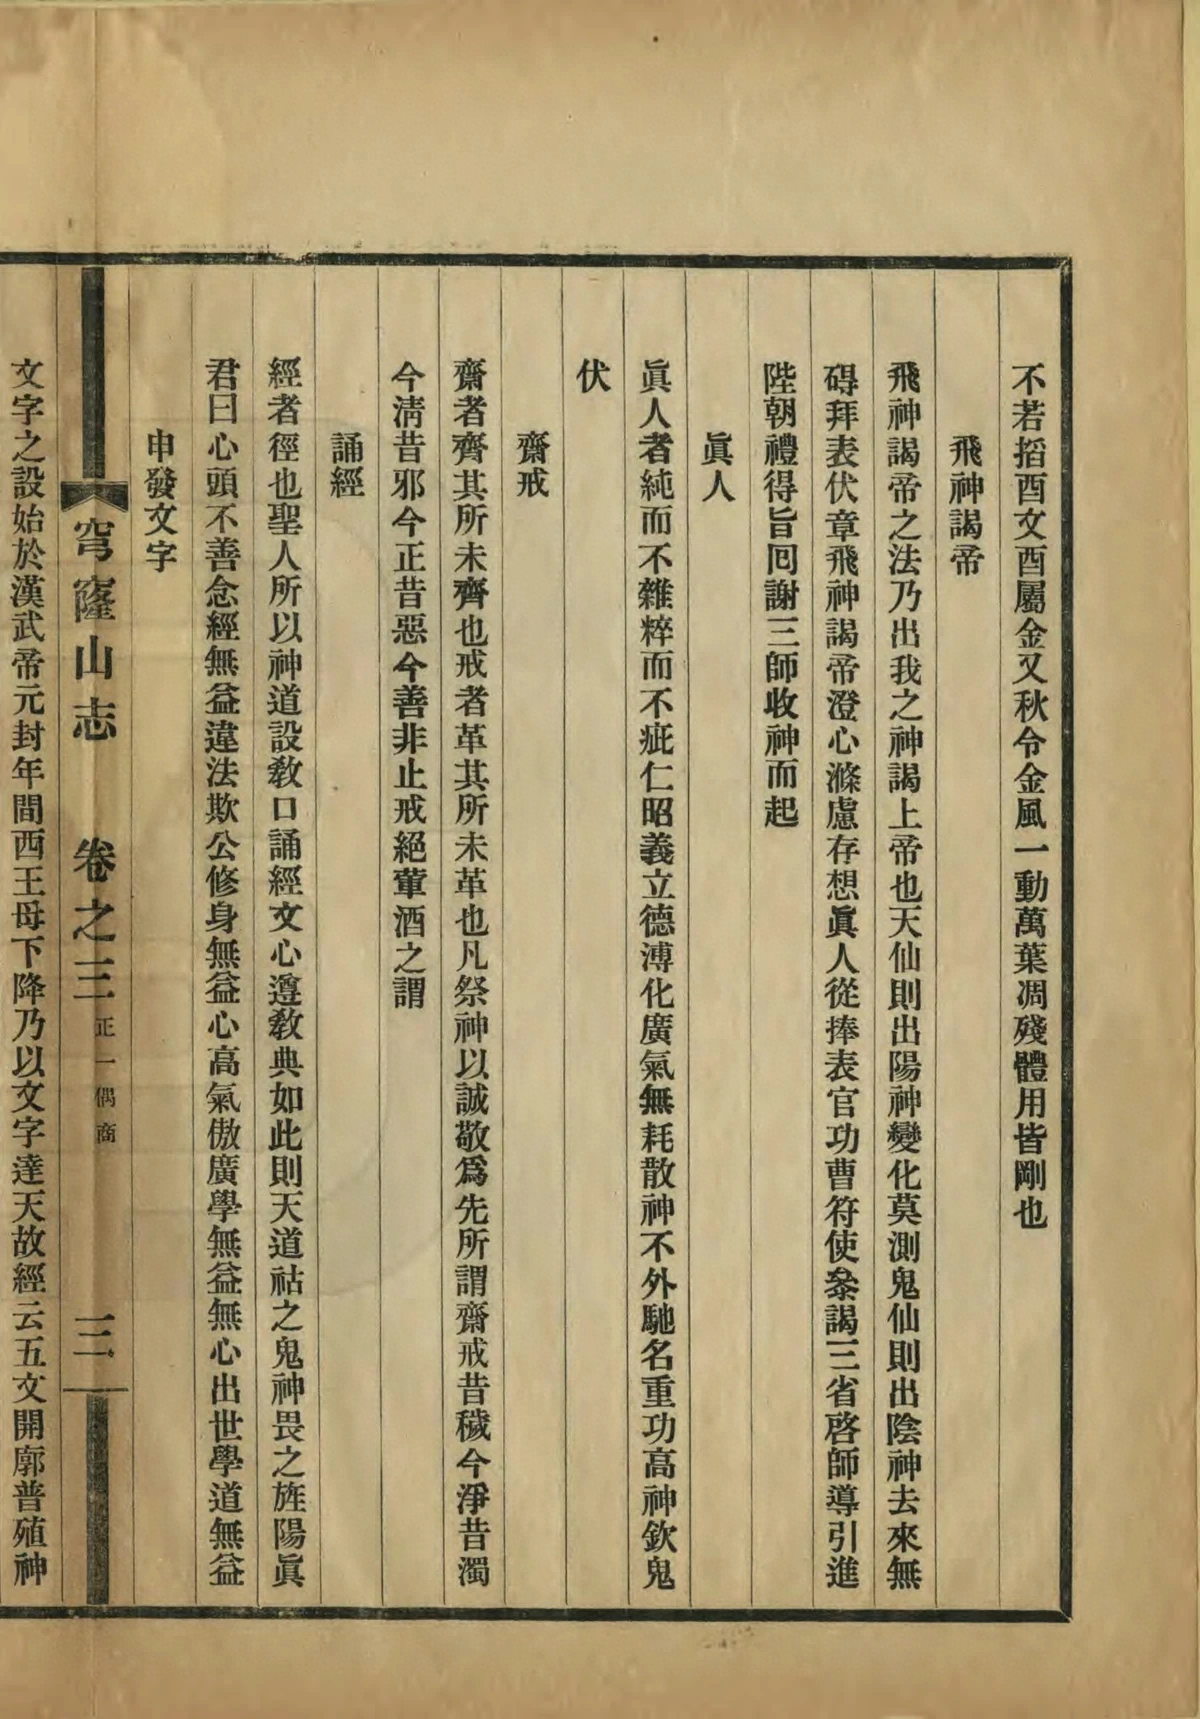 不若搯酉文酉屬金又秋令金風一動萬葉凋殘體用皆剛也
飛神謁帝
飛神謁帝之法乃出我之神謁上帝也天仙則出陽神變化莫測鬼仙則出陰神去來無
碍拜表伏章飛神謁帝澄心滌慮存想眞人從捧表官功曹符使叅謁三省啓師導引進
陛朝禮得旨囘謝三師收神而起
眞人
眞人者純而不雜粹而不疵仁昭義立德溥化廣氣無耗散神不外馳名重功高神欽鬼
伏
齋戒
齋者齊其所未齊也戒者革其所未革也凡祭神以誠敬爲先所謂齋戒昔穢今淨昔濁
今淸昔邪今正昔惡今善非止戒絕葷酒之謂
誦經
經者徑也聖人所以神道設敎口誦經文心遵敎典如此則天道祜之鬼神畏之旌陽眞
君曰心頭不善念經無益違法欺公修身無益心高氣傲廣學無益無心出世學道無益
申發文字
穹窿山志 卷之三 正一偶商 三
文字之設始於漢武帝元封年間西王母下降乃以文字達天故經云五文開廓普殖神